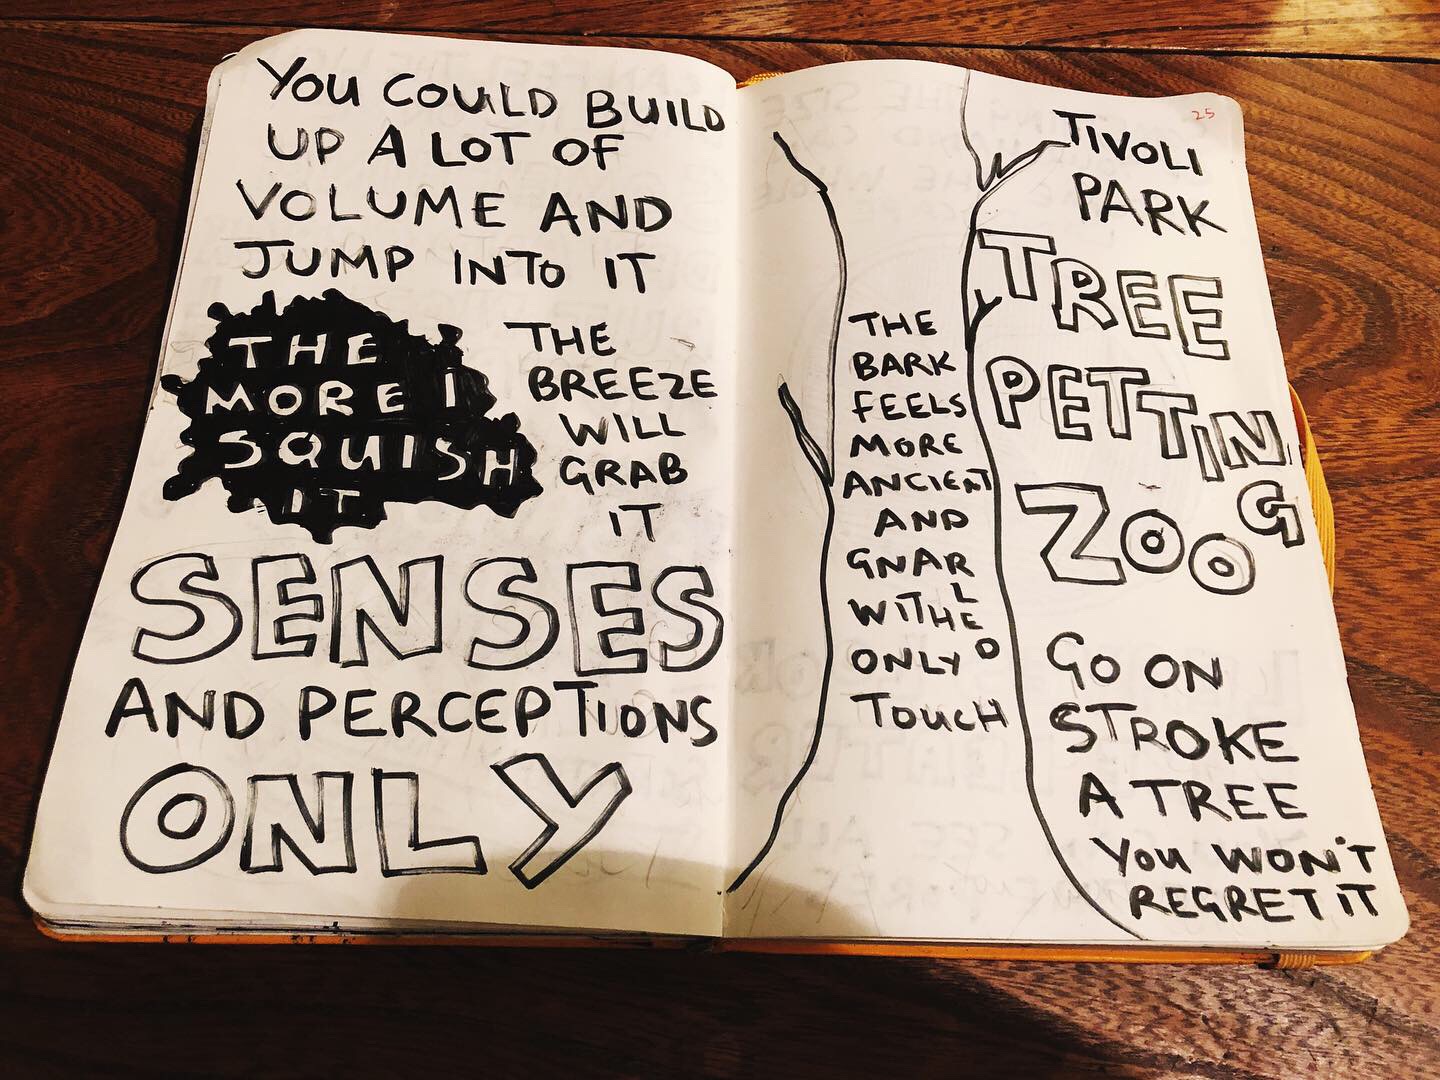 YOU COULD BUILD
UP A LOT OF
VOLUME AND
JUMP INTO IT
THE
MORE I
SQUISH
IT
THE
BREEZE
WILL
GRAB
IT
SENSES
AND PERCEPTIONS
ONLY
25
TIVOLI
PARK
TREE
PETTING
ZOO
THE
BARK
FEELS
MORE
ANCIENT
AND
GNARL
WITH
ONLY
TOUCH
GO ON
STROKE
A TREE
YOU WON'T
REGRET IT